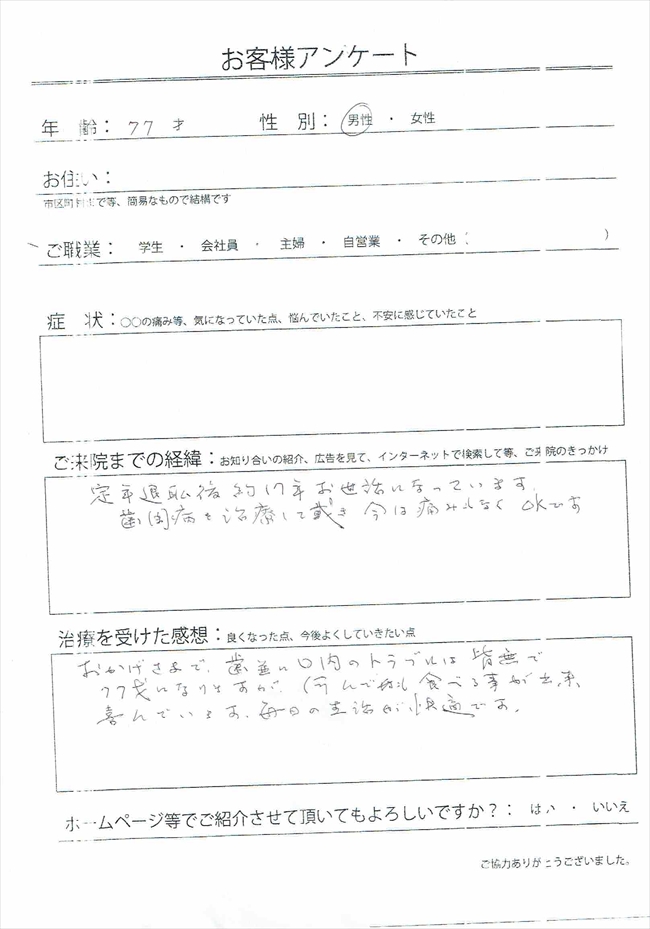 お客様アンケート
年 齢： 77 才 性 別： 男性 ・ 女性
お住い：
市区町村まで等、簡易なもので結構です
ご職業： 学生 ・ 会社員 ・ 主婦 ・ 自営業 ・ その他（ ）
症 状：○○の痛み等、気になっていた点、悩んでいたこと、不安に感じていたこと
ご来院までの経緯：お知り合いの紹介、広告を見て、インターネットで検索して等、ご来院のきっかけ
定年退職後約17年お世話になっています。
歯周病を治療して戴き 今は痛みもなく OKです
治療を受けた感想：良くなった点、今後よくしていきたい点
おかげさまで、歯並に口内のトラブルは皆無で
77歳になりますが、何んでも食べる事が出来、
喜んでいます。毎日の生活が快適です。
ホームページ等でご紹介させて頂いてもよろしいですか？： はい ・ いいえ
ご協力ありがとうございました。